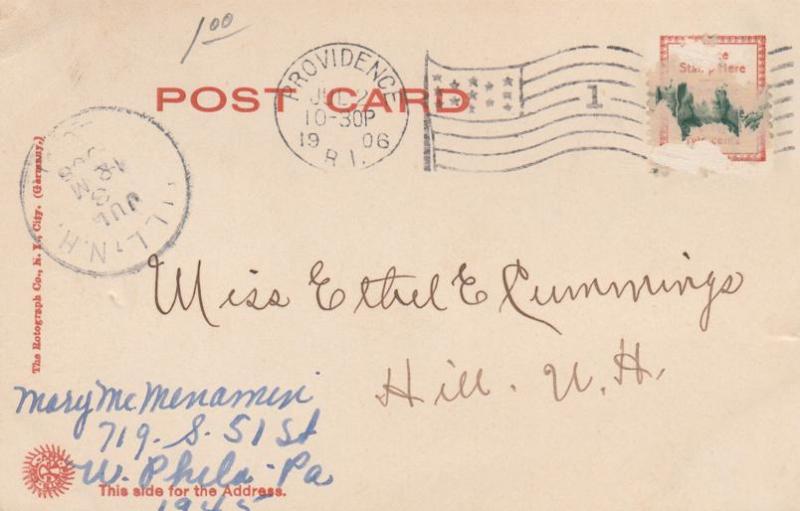 1.00
POST CARD
PROVIDENCE
JUL 2
10-30P
1906
R.I.
1
Stamp Here
ILL, N.H.
JUL
The Rotograph Co., N. Y., City. (Germany.)
Miss Ethel E Cummings
Hill. N. H.
Mary McMenamin
719. S. 51 St
W. Phila - Pa
This side for the Address.
1945